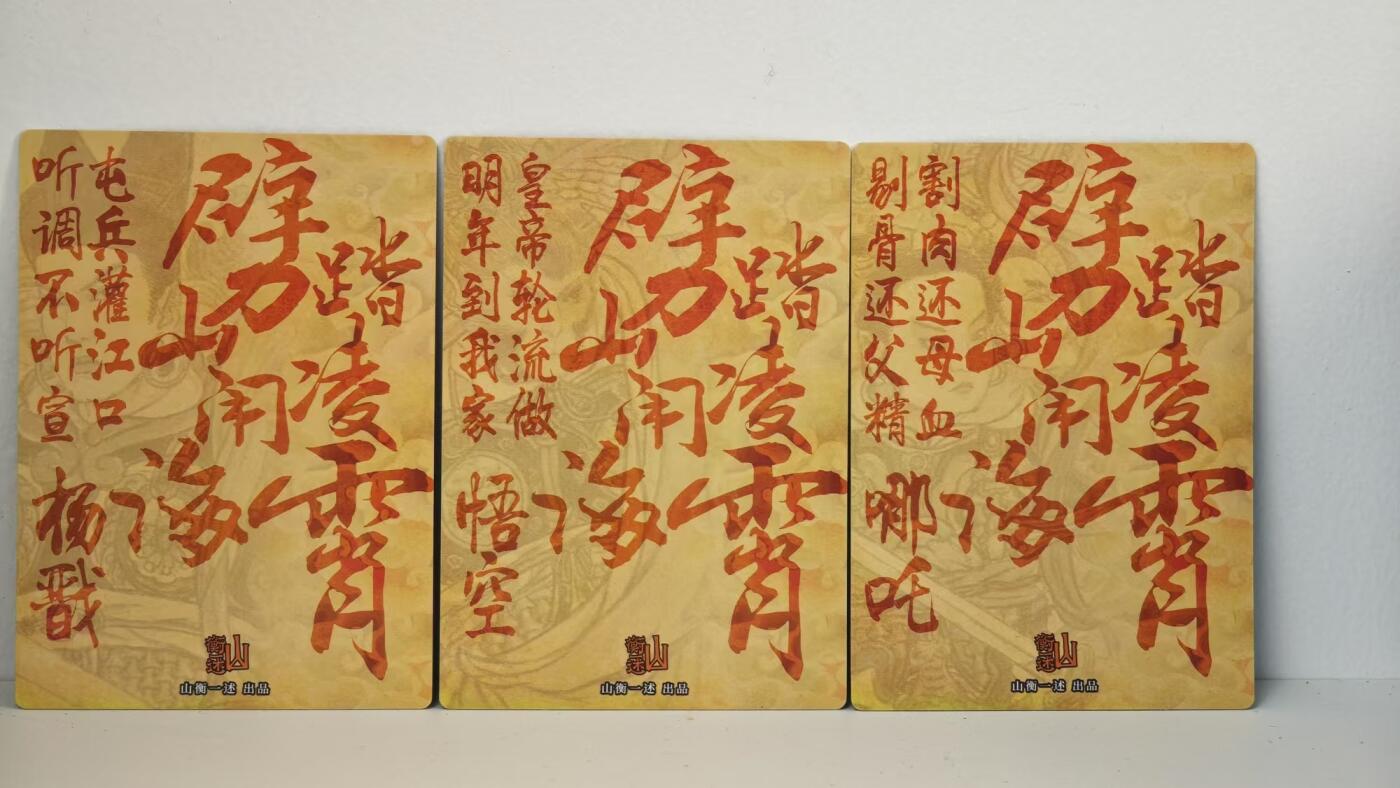 劈山闹海
踏凌霄
屯兵灌江口
听调不听宣
杨戬
衡述山
山衡一述 出品
劈山闹海
踏凌霄
皇帝轮流做
明年到我家
悟空
衡述山
山衡一述 出品
劈山闹海
踏凌霄
割肉还母血
剔骨还父精
哪吒
衡述山
山衡一述 出品